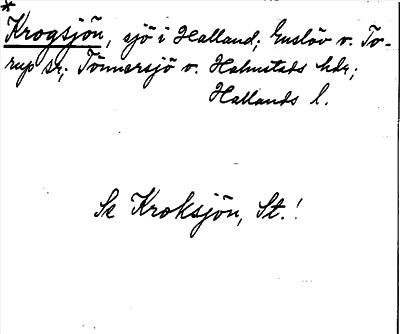 *
Krogsjön, sjö i Halland; Enslöv o. To-
rup sr; Tönnersjö o. Halmstads hdr;
Hallands l.
Se Kroksjön, St.!